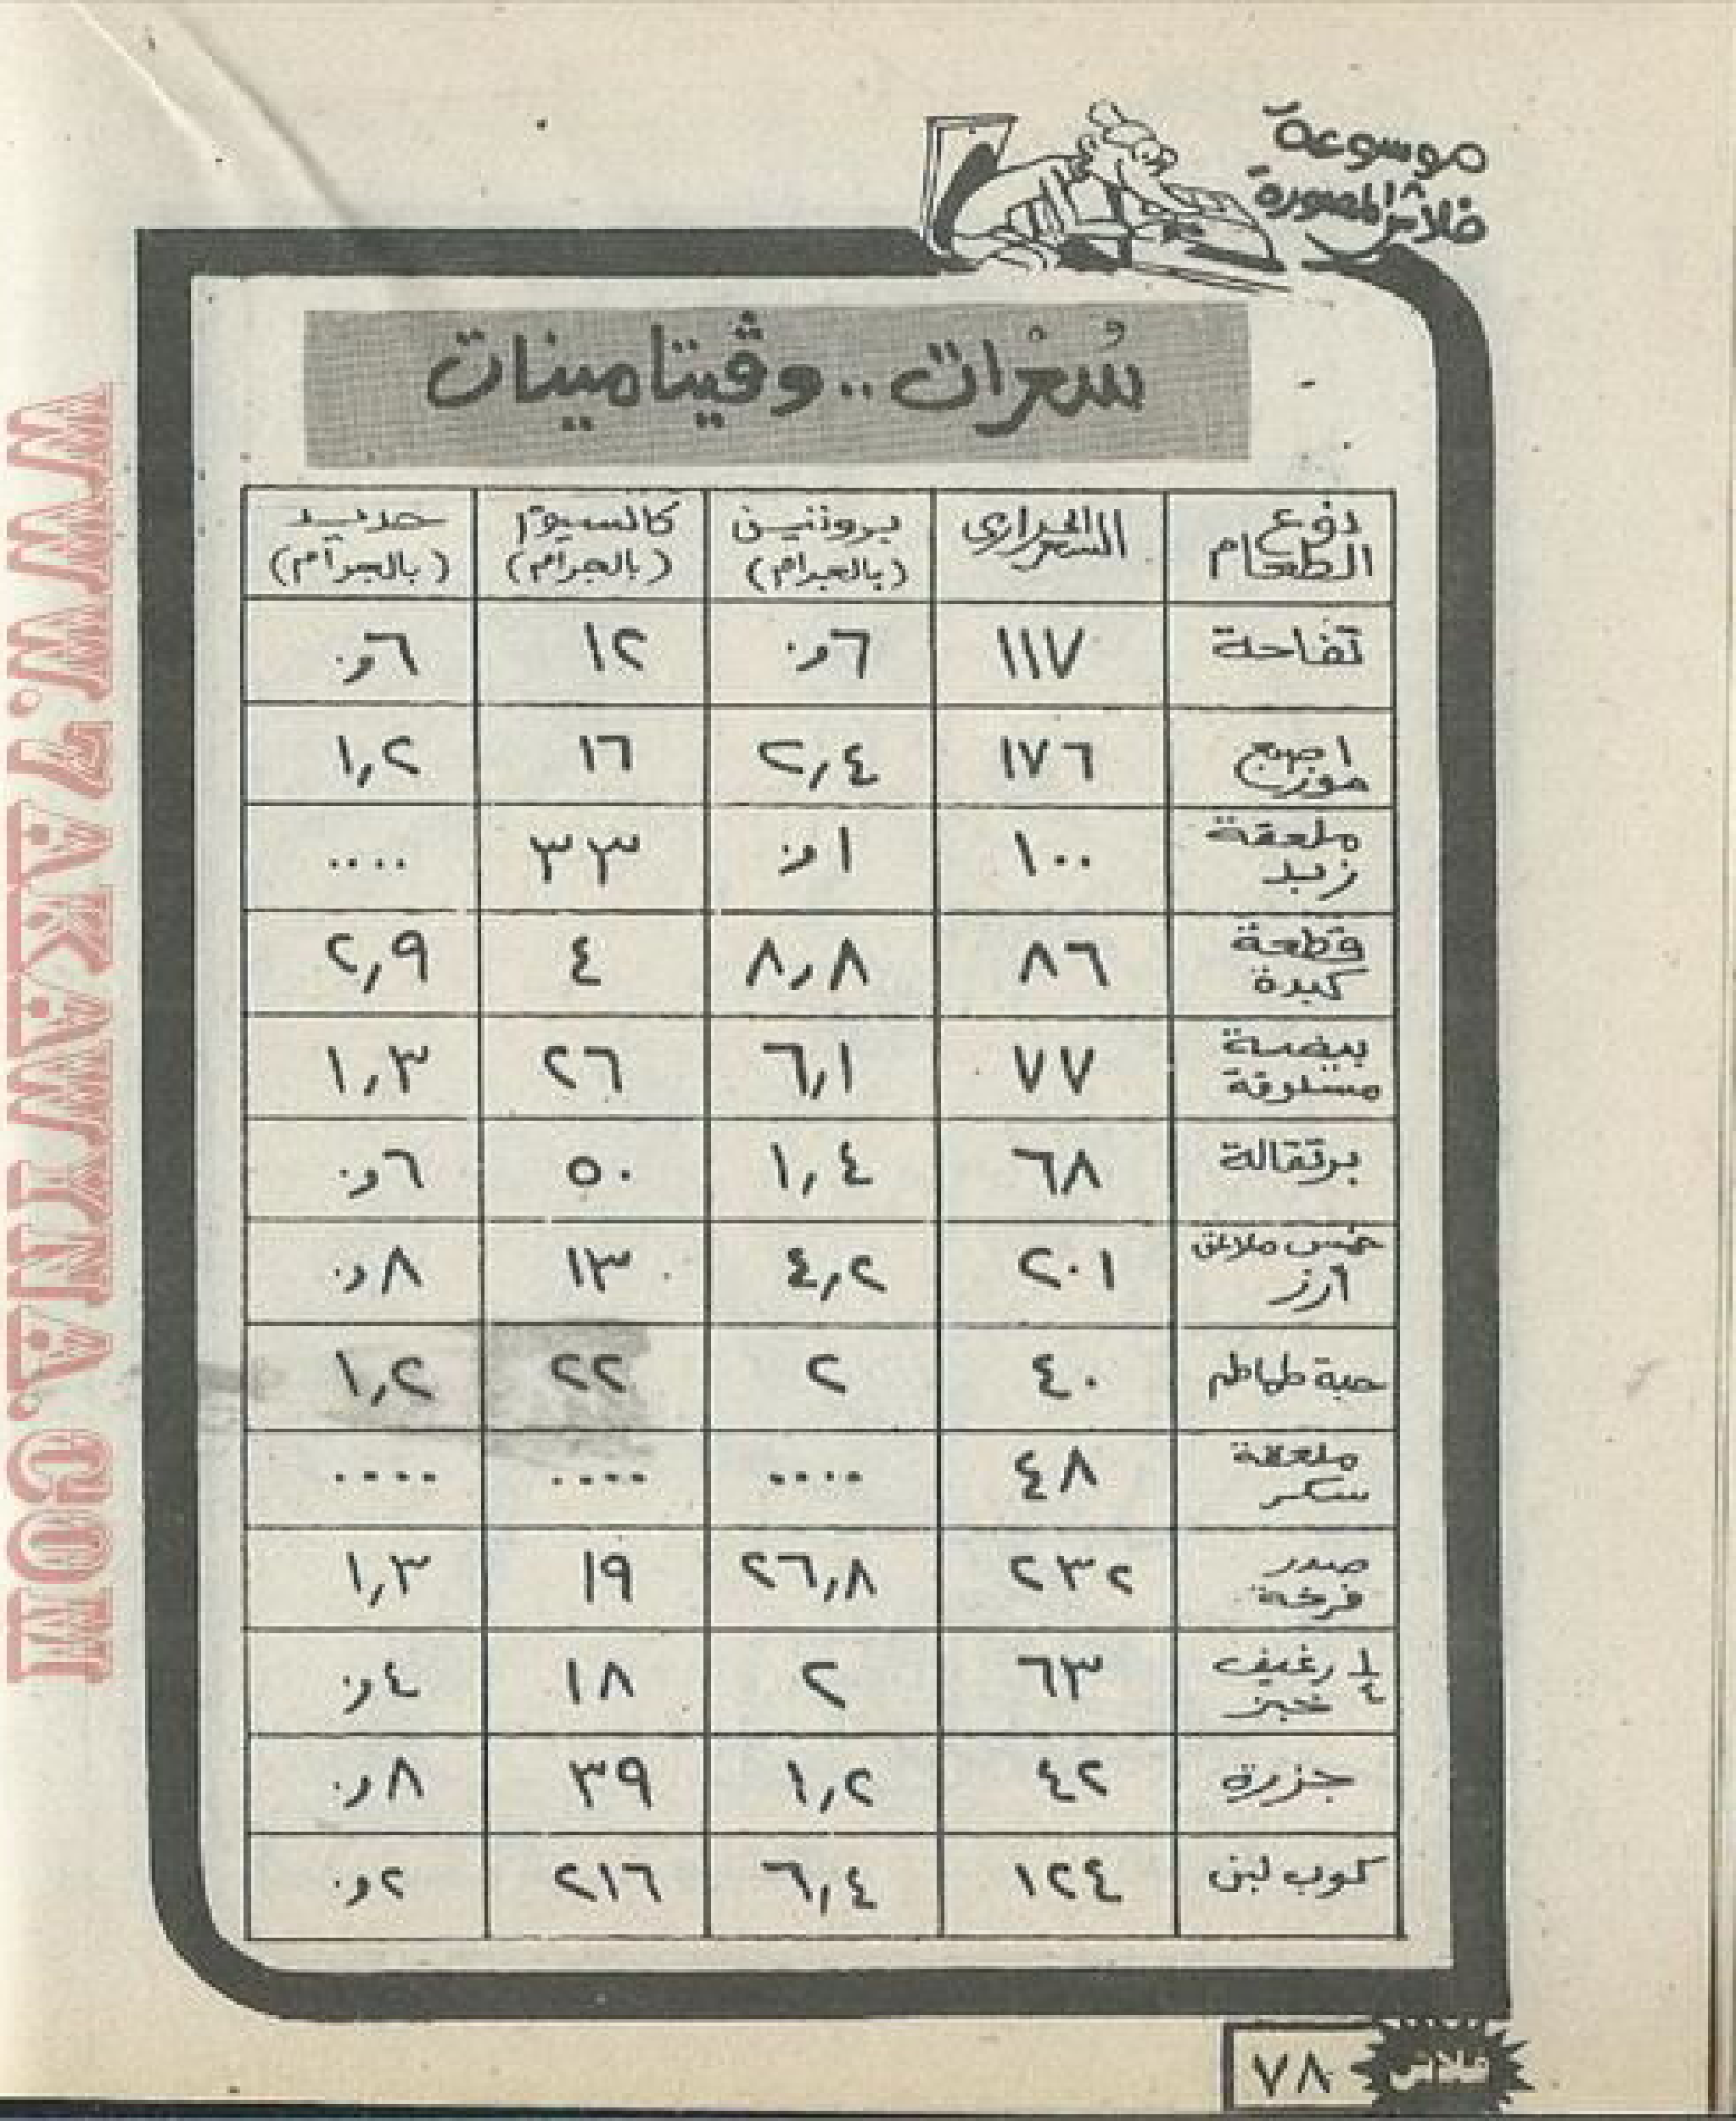 موسوعة
فلاش المصورة
سُعْرات.. وڤيتامينات
نوع الطعام | السعر الحرارى | بروتين (بالجرام) | كالسيوم (بالجرام) | حديد (بالجرام)
تفاحة | ١١٧ | ٦ر٠ | ١٢ | ٦ر٠
١ صبع موز | ١٧٦ | ٢,٤ | ١٦ | ١,٢
ملعقة زبد | ١٠٠ | ١ر٠ | ٣٣ | ....
قطعة كبدة | ٨٦ | ٨,٨ | ٤ | ٢,٩
بيضة مسلوقة | ٧٧ | ٦,١ | ٢٦ | ١,٣
برتقالة | ٦٨ | ١,٤ | ٥٠ | ٦ر٠
خمس ملاعق أرز | ٢٠١ | ٤,٢ | ١٣ | ٨ر٠
حبة طماطم | ٤٠ | ٢ | ٢٢ | ١,٢
ملعقة سكر | ٤٨ | .... | .... | ....
صدر فرخة | ٢٣٢ | ٢٦,٨ | ١٩ | ١,٣
١/٤ رغيف خبز | ٦٣ | ٢ | ١٨ | ٤ر٠
جزرة | ٤٢ | ١,٢ | ٣٩ | ٨ر٠
كوب لبن | ١٢٤ | ٦,٤ | ٢١٦ | ٢ر٠
فلاش ٧٨
WWW.7AKAWITNA.COM